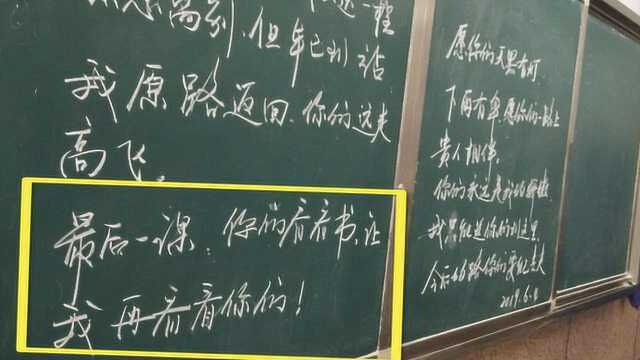 但车已到站
我原路返回,你们远走
高飞。
最后一课,你们看看书,让
我再看看你们!
愿你们的天黑有灯
下雨有伞,愿你们一路上
贵人相伴。
你们永远是我的骄傲
我只能送你们到这里
今后的路你们要自己走
2019.6.